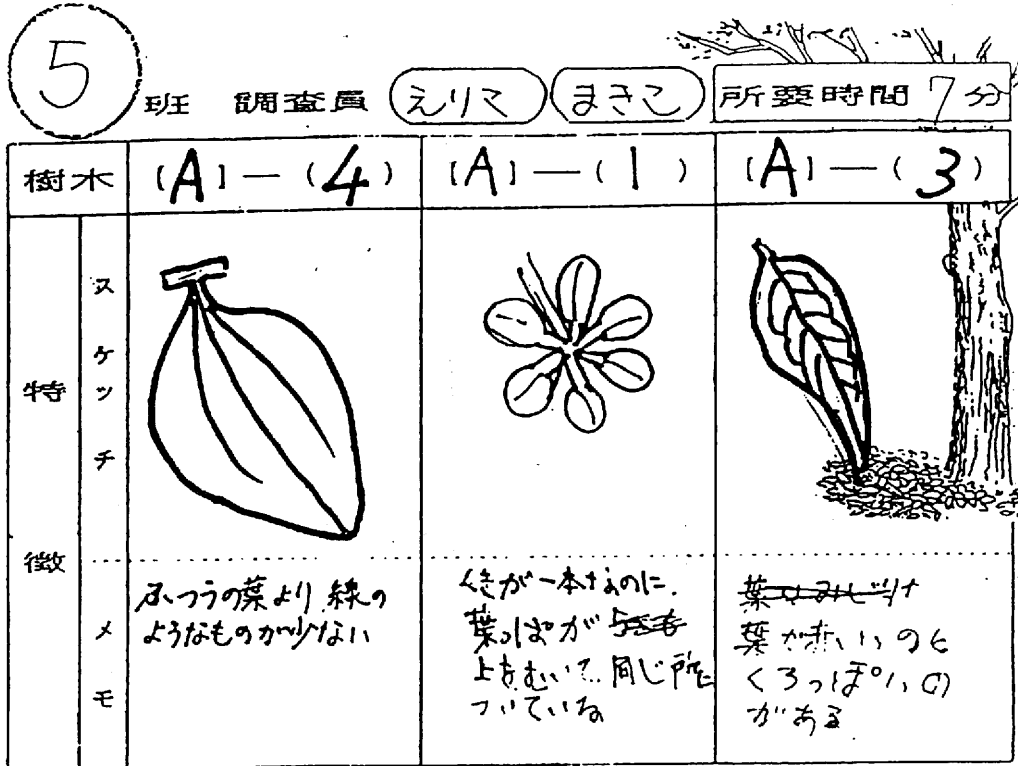 5 班 調査員 えりこ まきこ 所要時間 7分
樹木 [A]—(4) [A]—(1) [A]—(3)
特徴
スケッチ
メモ
ふつうの葉より 線の
ようなものが少ない
くきが一本なのに
葉っぱが
上をむいて 同じ所に
ついている
葉が赤いのと
くろっぽいの
がある